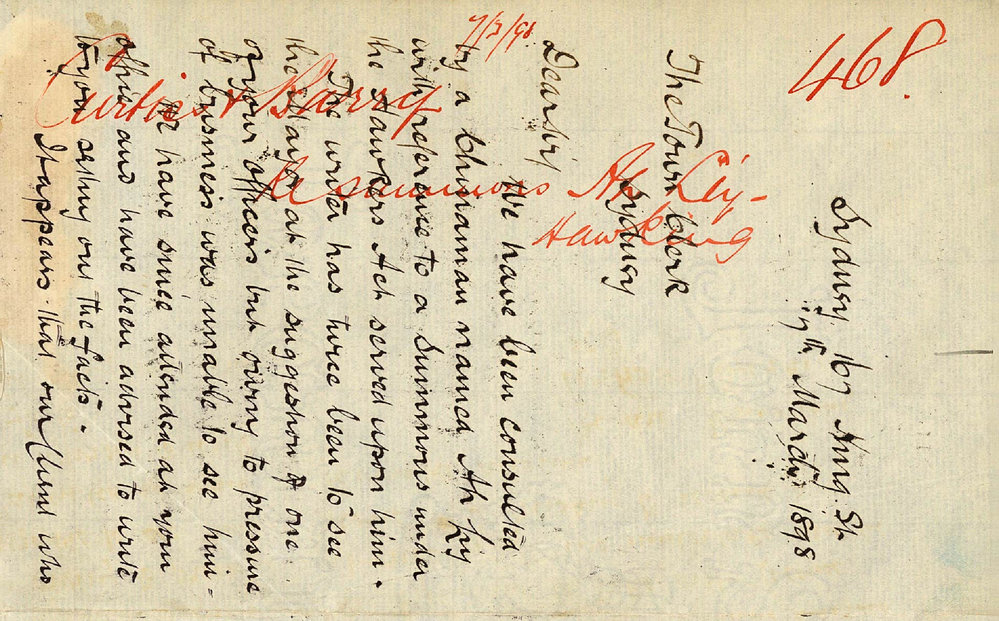 468.
7/3/98
Curtiss & Barry
re summons Ah Ley -
Hawking
Sydney 167 King St.
7th March 1898
The Town Clerk
Sydney
Dear Sir,
We have been consulted
by a Chinaman named Ah Ley
with reference to a Summons under
the Hawkers Act served upon him.
The writer has twice been to see
the Mayor at the suggestion of one
of your officers but owing to pressure
of business was unable to see him -
We have since attended at your
office and have been advised to write
to you setting out the facts.
It appears that our Client who